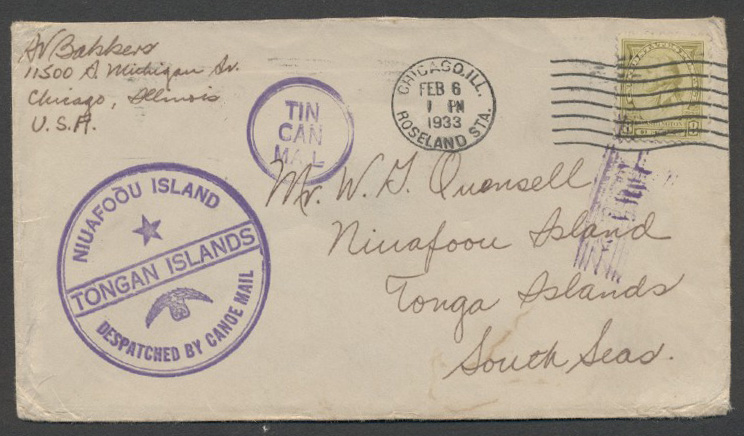 AV Bakkers
11300 S. Michigan Av.
Chicago, Illinois
U.S.A.
TIN
CAN
MAIL
CHICAGO, ILL.
FEB 6
1 PM
1933
ROSELAND STA.
NIUAFOŌU ISLAND
TONGAN ISLANDS
DESPATCHED BY CANOE MAIL
Mr. W. G. Quensell
Niuafoou Island
Tonga Islands
South Seas.